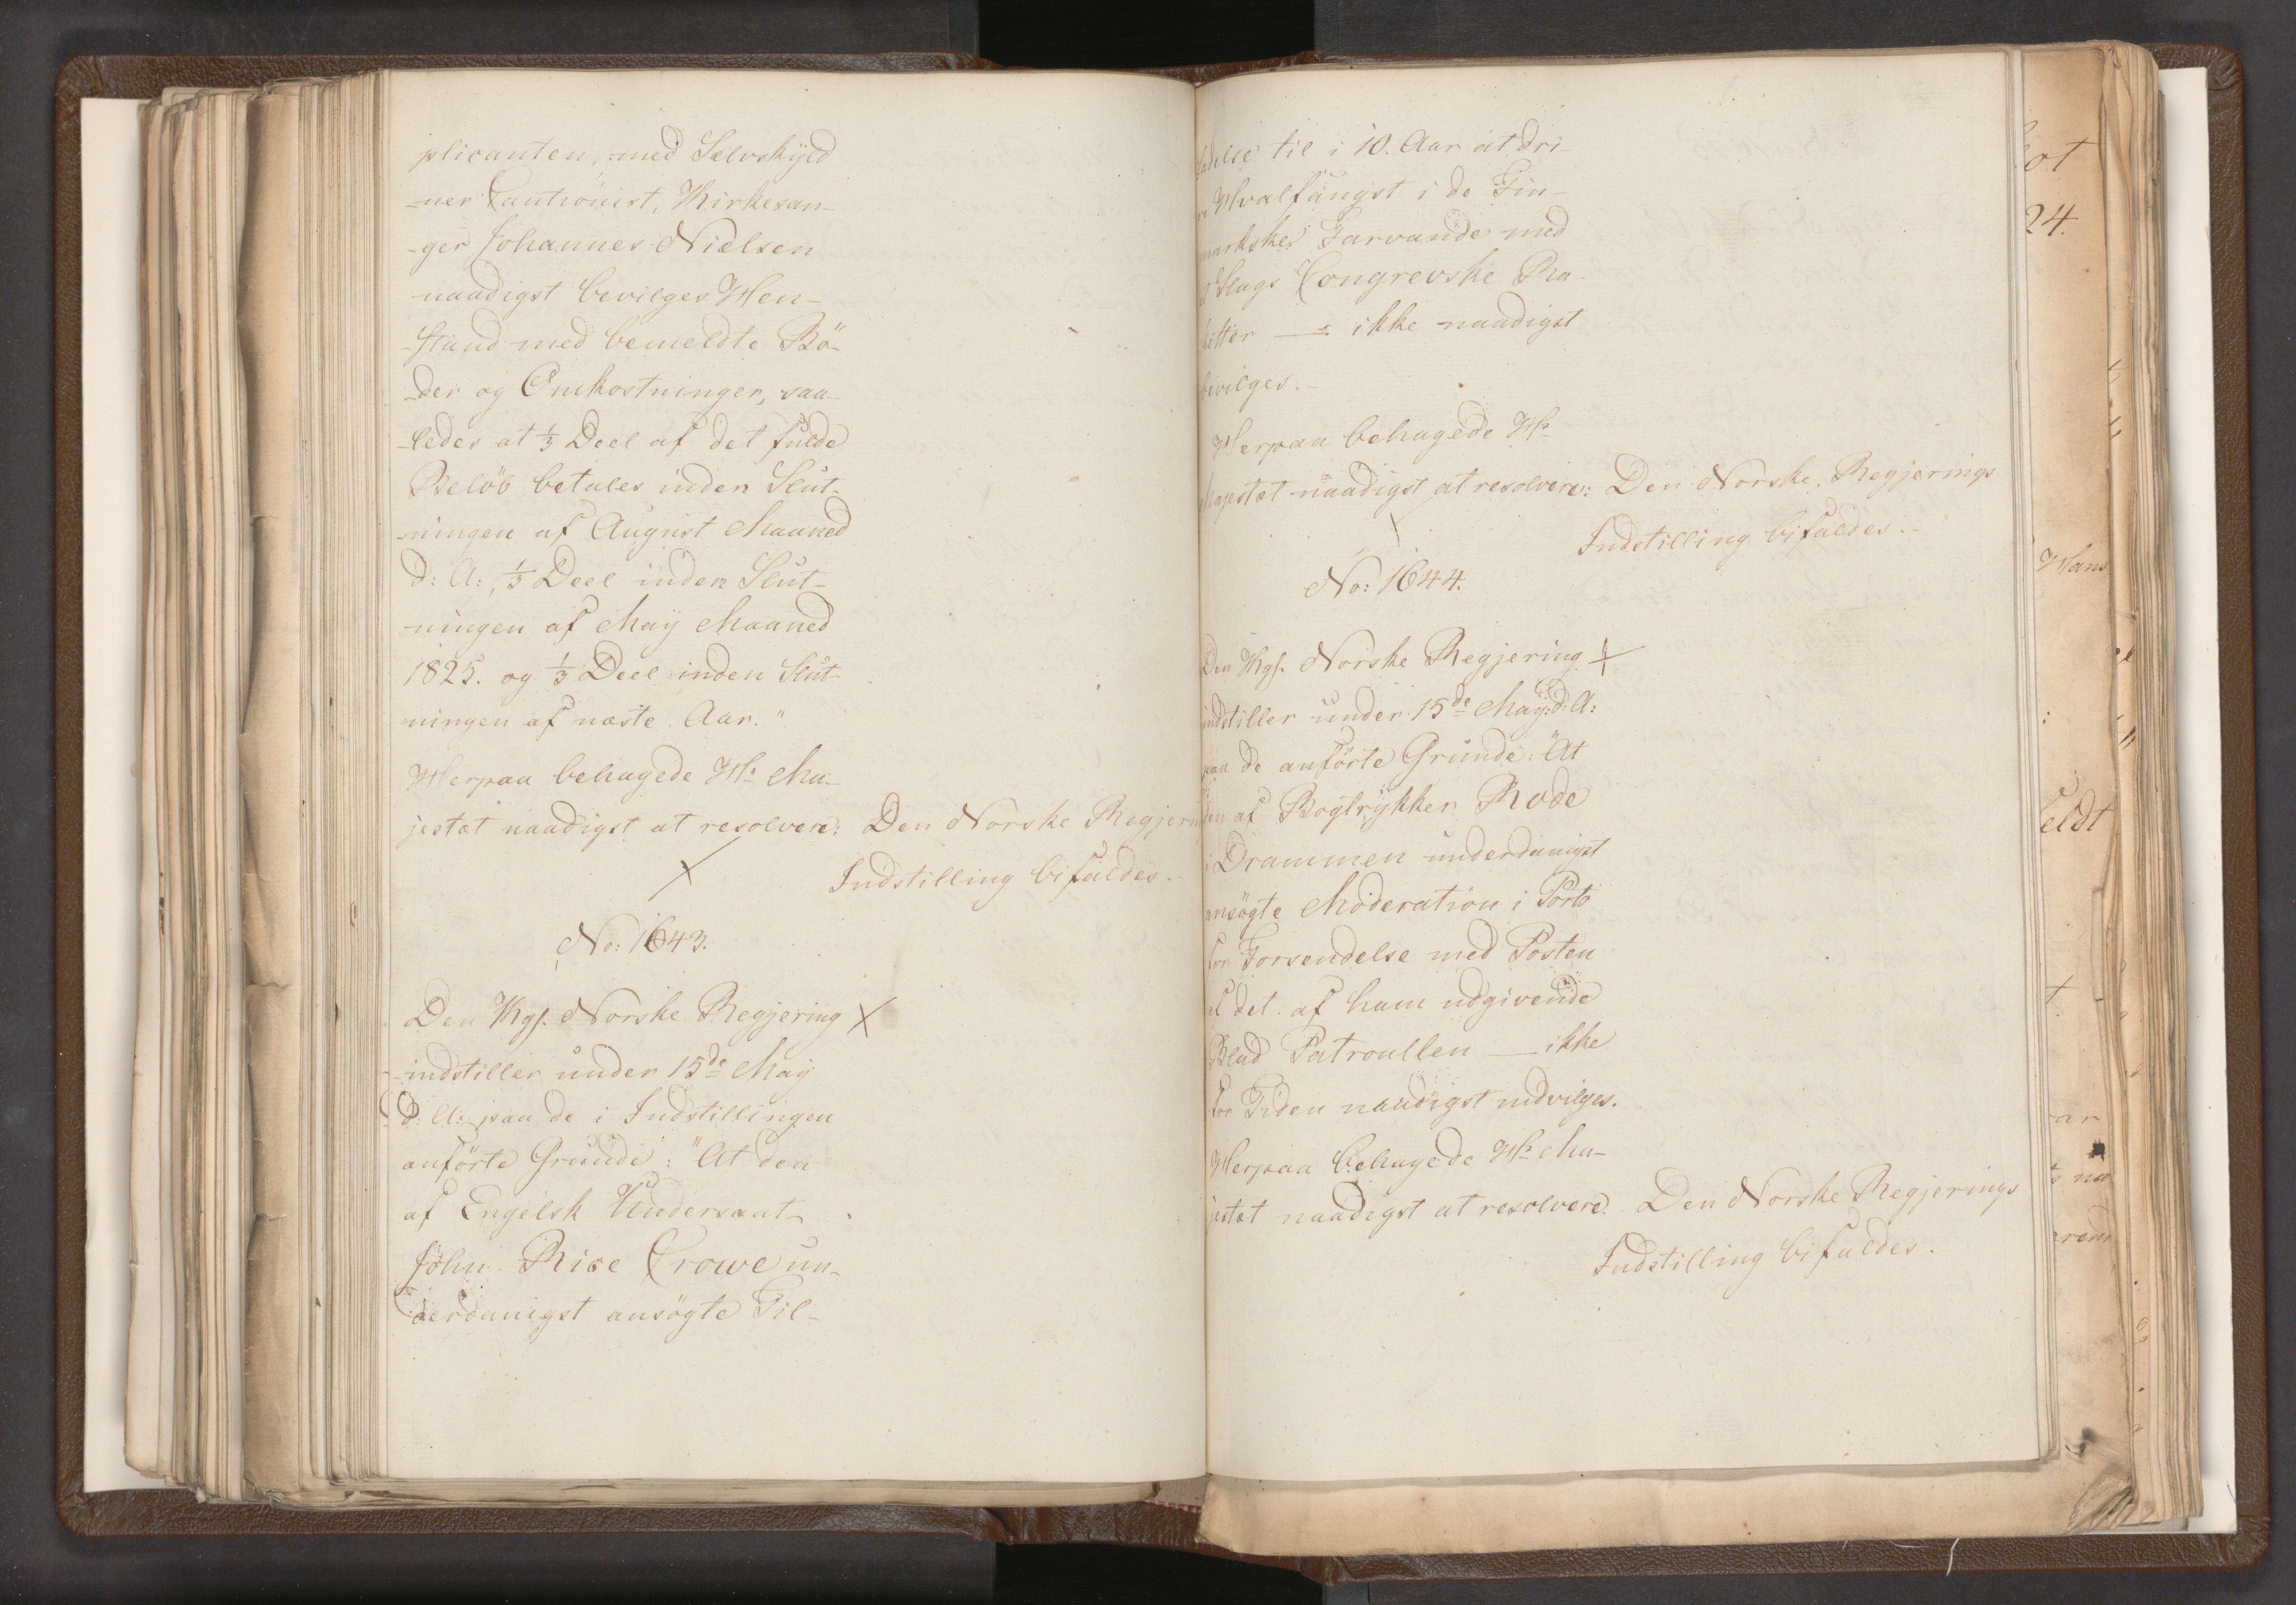 plicanten, med Selvskyld
-ner Cautionist, Kirkesan-
-ger Johannes Nielsen
naadigst bevilges Hen-
-stand med bemeldte Bö-
-der og Omkostninger, saa-
-ledes at 1/3 Deel af det fulde
Belöb betales inden Slut-
-ningen af August Maaned
d: A:, 1/3 Deel inden Slut-
-ningen af May Maaned
1825. og 1/3 Deel inden Slut-
ningen af næste Aar."
Herpaa behagede Hs Ma-
jestæt naadigst at resolvere: Den Norske Regjerin
Indstilling bifaldes.
No: 1643.
Den Kgl. Norske Regjering
indstiller under 15de May
d: A: paa de i Indstillingen
anförte Grunde: "At den
af Engelsk Undersaat
John Rice Crowe un-
derdanigst ansögte Til-
ladelse til i 10. Aar at dri-
Hvalfangst i de Fin-
markske Farvande med
Slags Congrevske Ra-
ketter — ikke naadigst
bevilges.-
Herpaa behagede Hs
Majestæt naadigst at resolvere: Den Norske Regjerings
Indstilling bifaldes.-
No: 1644.
Den Kgl. Norske Regjering
indstiller under 15de May d: A:
paa de anförte Grunde: "At
den af Bogtrykker Rode
i Drammen underdanigst
ansögte Moderation i Porto
for Forsendelse med Posten
af det af ham udgivende
Blad Patroullen — ikke
for Tiden naadigst indvilges.
Herpaa behagede Hs Ma-
jestæt naadigst at resolvere. Den Norske Regjerings
Indstilling bifaldes.
24.
Hans